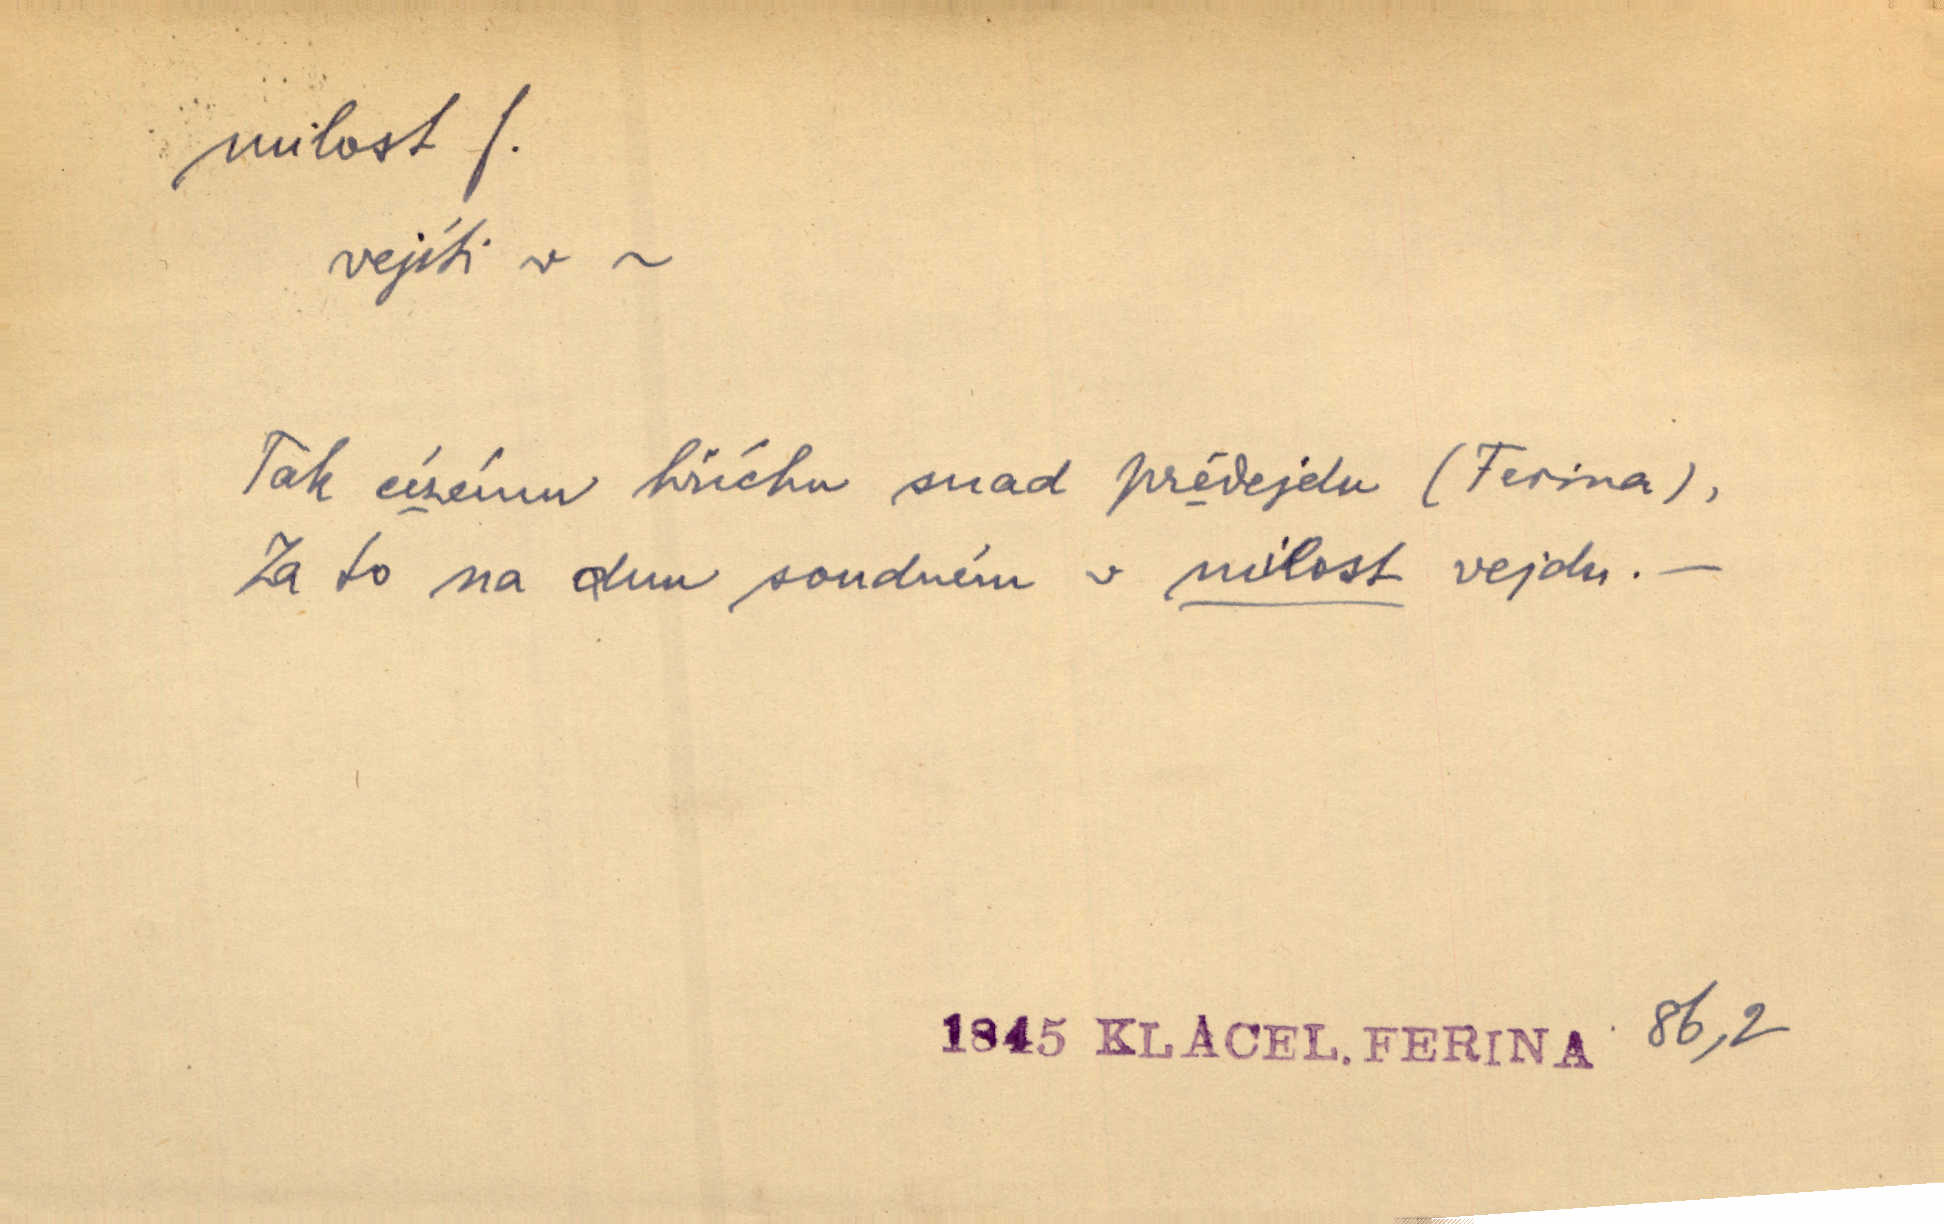 milost f.
vejíti v ~
Tak cízému hříchu snad prédejdu (Ferina),
Za to na dnu soudném v milost vejdu. —
1845 KLÁCEL. FERINA 86,2